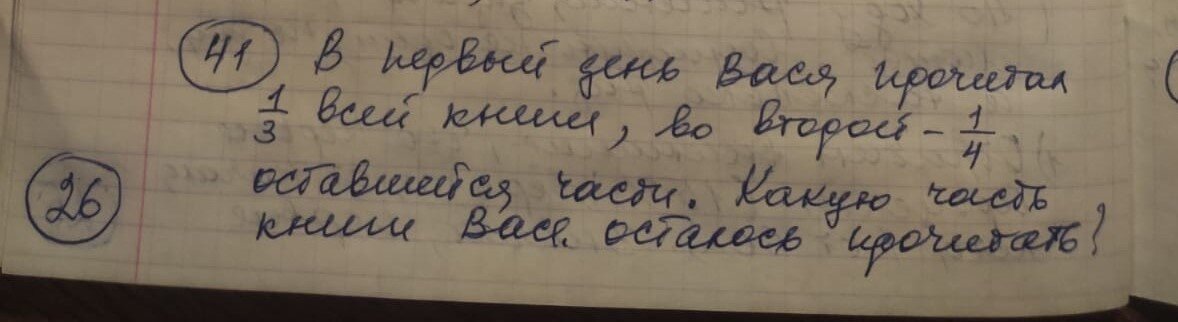 41 В первый день Вася прочитал
1/3 всей книги, во второй - 1/4
оставшейся части. Какую часть
26
книги Васе осталось прочитать?